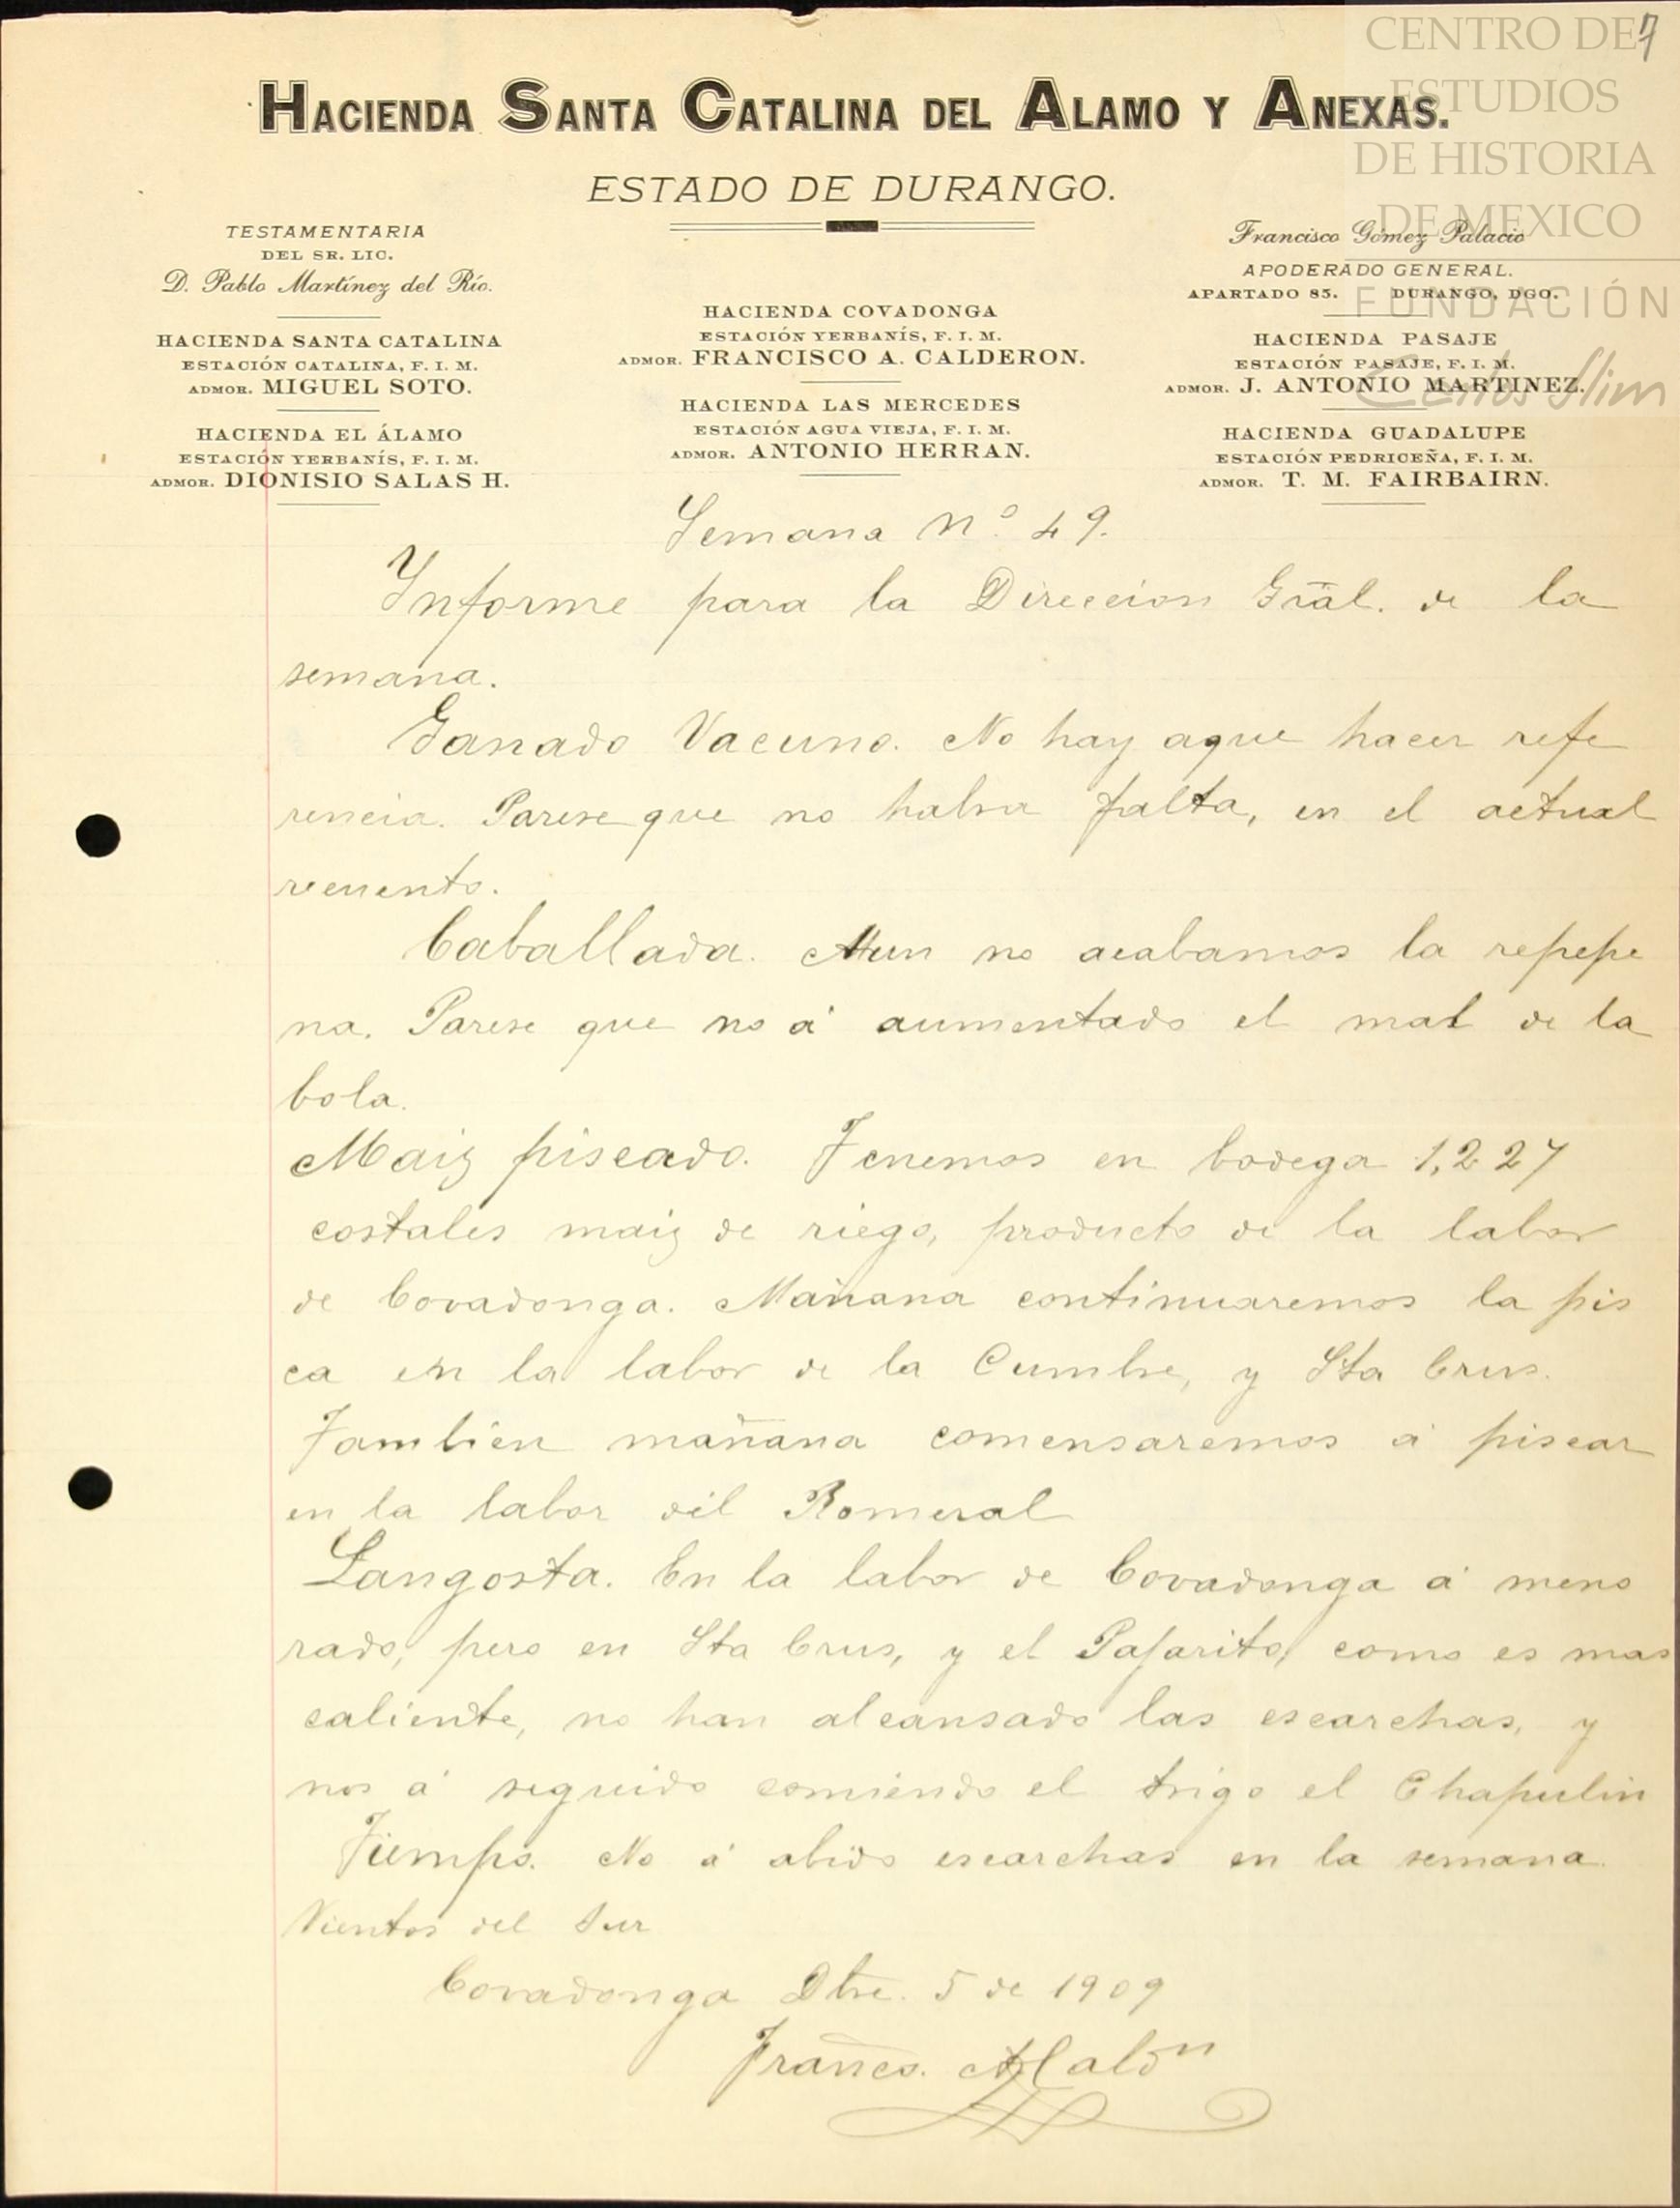 7
CENTRO DE
ESTUDIOS
DE HISTORIA
DE MEXICO
FUNDACIÓN
Carlos Slim
HACIENDA SANTA CATALINA DEL ALAMO Y ANEXAS.
ESTADO DE DURANGO.
TESTAMENTARIA
DEL SR. LIC.
D. Pablo Martínez del Río.
HACIENDA SANTA CATALINA
ESTACIÓN CATALINA, F. I. M.
ADMOR. MIGUEL SOTO.
HACIENDA EL ÁLAMO
ESTACIÓN YERBANÍS, F. I. M.
ADMOR. DIONISIO SALAS H.
HACIENDA COVADONGA
ESTACIÓN YERBANÍS, F. I. M.
ADMOR. FRANCISCO A. CALDERON.
HACIENDA LAS MERCEDES
ESTACIÓN AGUA VIEJA, F. I. M.
ADMOR. ANTONIO HERRAN.
Francisco Gómez Palacio
APODERADO GENERAL.
APARTADO 85. DURANGO, DGO.
HACIENDA PASAJE
ESTACIÓN PASAJE, F. I. M.
ADMOR. J. ANTONIO MARTINEZ.
HACIENDA GUADALUPE
ESTACIÓN PEDRICEÑA, F. I. M.
ADMOR. T. M. FAIRBAIRN.
Semana Nº 49.
Ynforme para la Direccion Gral. de la
semana.
Ganado Vacuno. No hay aque hacer refe
rencia. Parese que no habra falta, en el actual
recuento.
Caballada. Aun no acabamos la repepe
na. Parese que no á aumentado el mal de la
bola.
Maiz piscado. Tenemos en bodega 1,227
costales maiz de riego, producto de la labor
de Covadonga. Mañana continuaremos la pis
ca en la labor de la Cumbre, y Sta Crus.
Tambien mañana comensaremos á piscar
en la labor del Romeral
Langosta. En la labor de Covadonga á meno
rado, pero en Sta Crus, y el Pajarito, como es mas
caliente, no han alcansado las escarchas, y
nos á seguido comiendo el trigo el Chapulin
Tiempo. No á abido escarchas en la semana.
Vientos del Sur
Covadonga Dbre. 5 de 1909
Franco. A Caldn